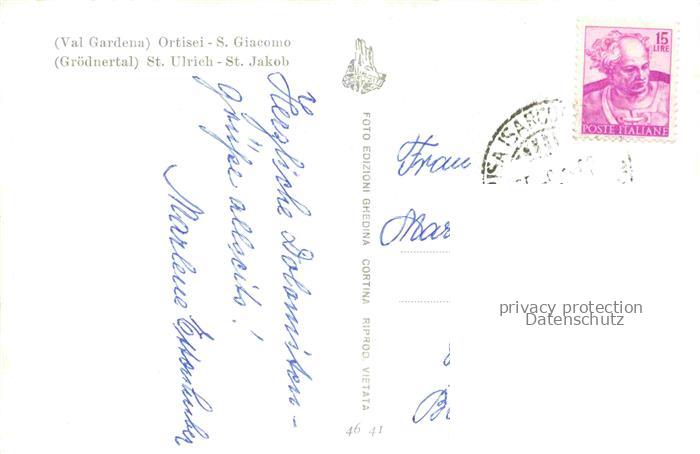 (Val Gardena) Ortisei - S. Giacomo
(Grödnertal) St. Ulrich - St. Jakob
Herzliche Dolomiten-
grüße allseits!
Marlene
FOTO EDIZIONI GHEDINA CORTINA RIPROD. VIETATA
46 41
15
LIRE
POSTE ITALIANE
Frau
Mar
privacy protection
Datenschutz